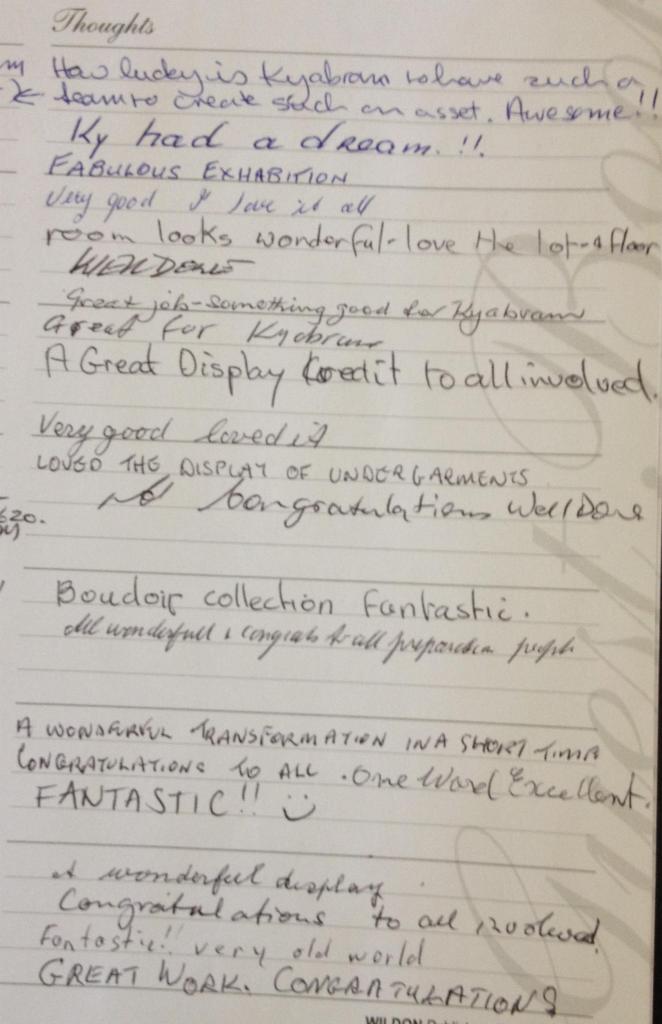 Thoughts
m How lucky is Kyabram to have such a
team to create such an asset. Awesome!!
Ky had a dream.!!.
FABULOUS EXHABITION
Very good I love it all
room looks wonderful - love the lot - & floor
WELL DONE
Great job - something good for Kyabram
Great for Kyabram
A Great Display Credit to all involved.
Very good loved it
LOVED THE DISPLAY OF UNDERGARMENTS
Congratulations Well Done
620.
Boudoir collection Fantastic.
All wonderfull & congrats to all preparation people
A WONDERFUL TRANSFORMATION IN A SHORT TIME
CONGRATULATIONS TO ALL . One Word Excellent.
FANTASTIC!!
A wonderful display
Congratulations to all involved.
Fantastic!! very old world
GREAT WORK. CONGRATULATIONS
Guest Book